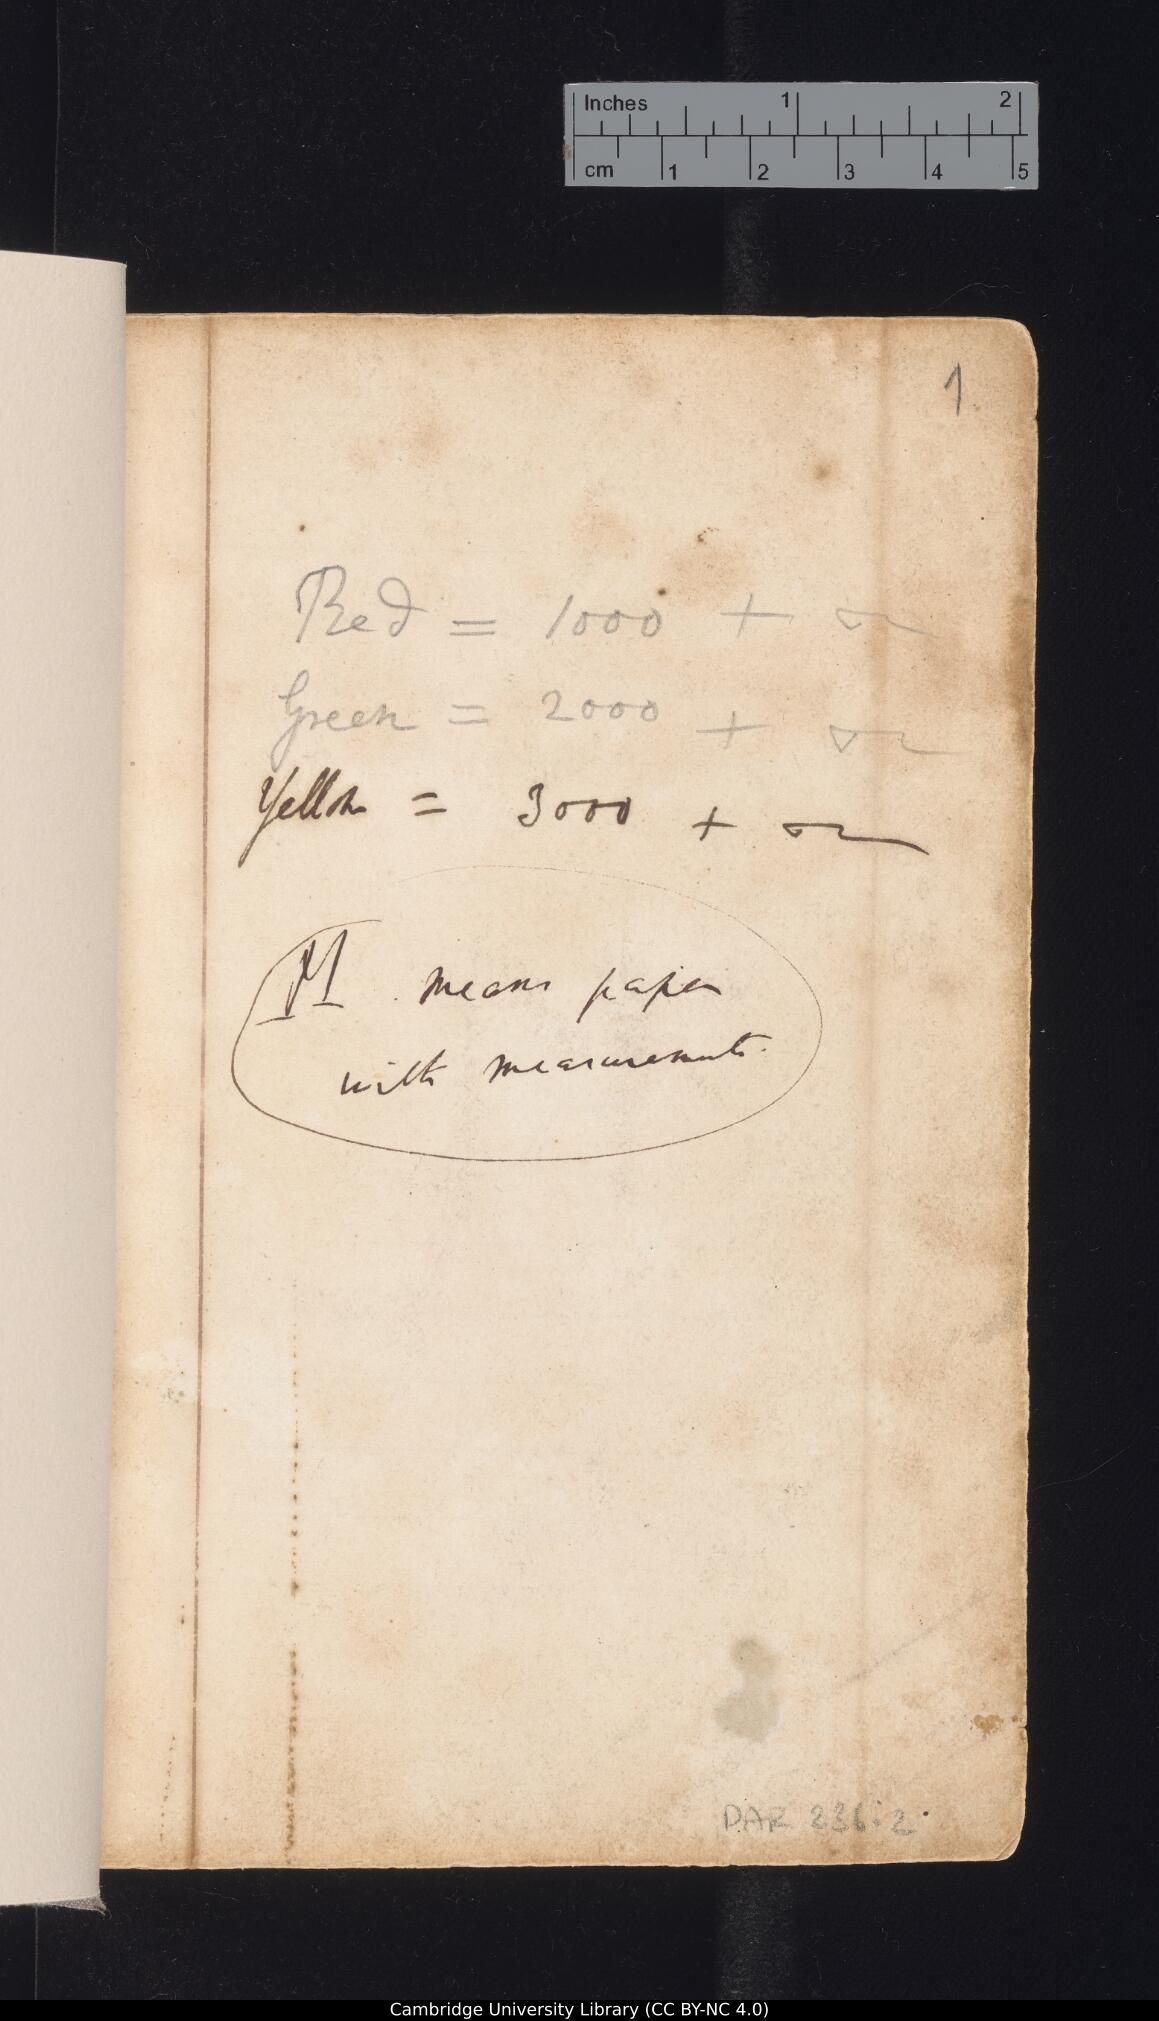 Inches 1 2
cm 1 2 3 4 5
1
Red = 1000 +
Green = 2000 +
Yellow = 3000 +
M means paper
with measurements.
DAR 236:2
Cambridge University Library (CC BY-NC 4.0)